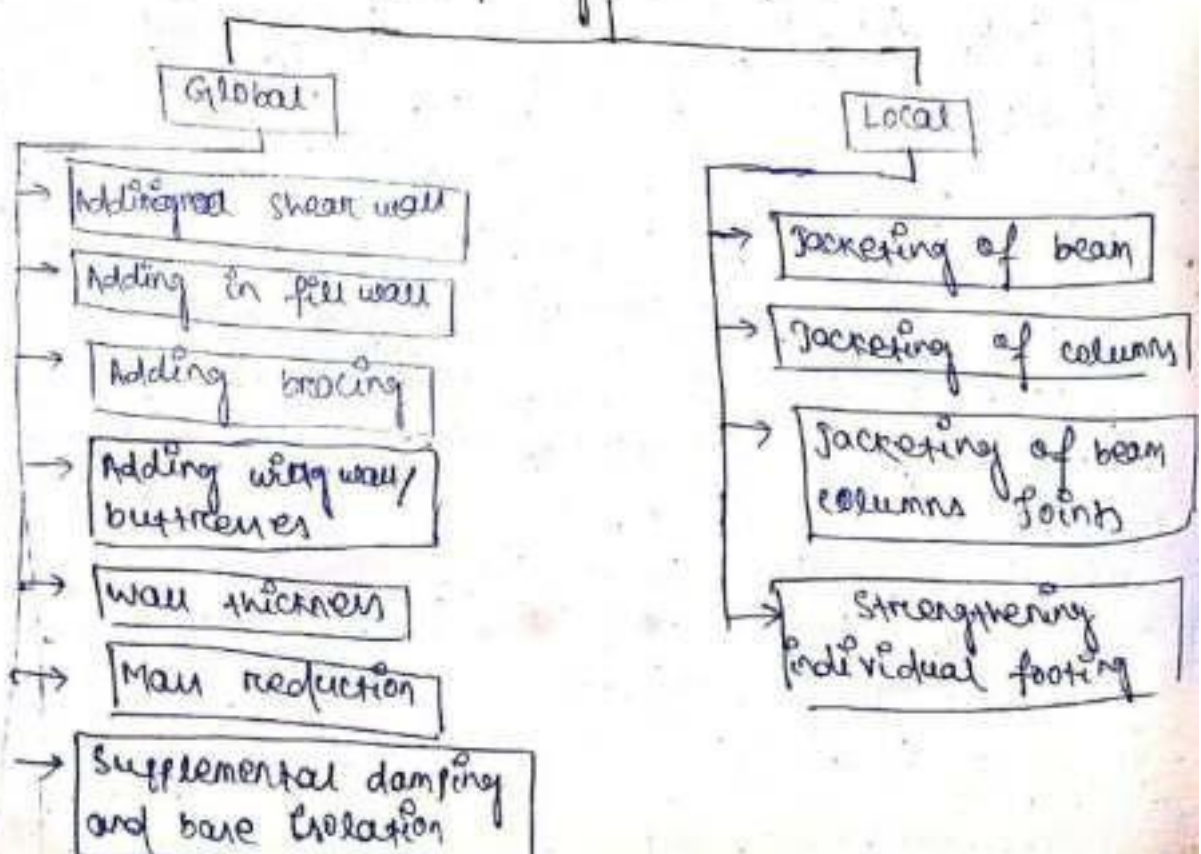 Global
Local
Adding shear wall
Adding in fill wall
Adding bracing
Adding wing wall/
buttresses
Wall thickness
Mass reduction
Supplemental damping
and base isolation
Jacketing of beam
Jacketing of columns
Jacketing of beam
columns joints
Strengthening
individual footing